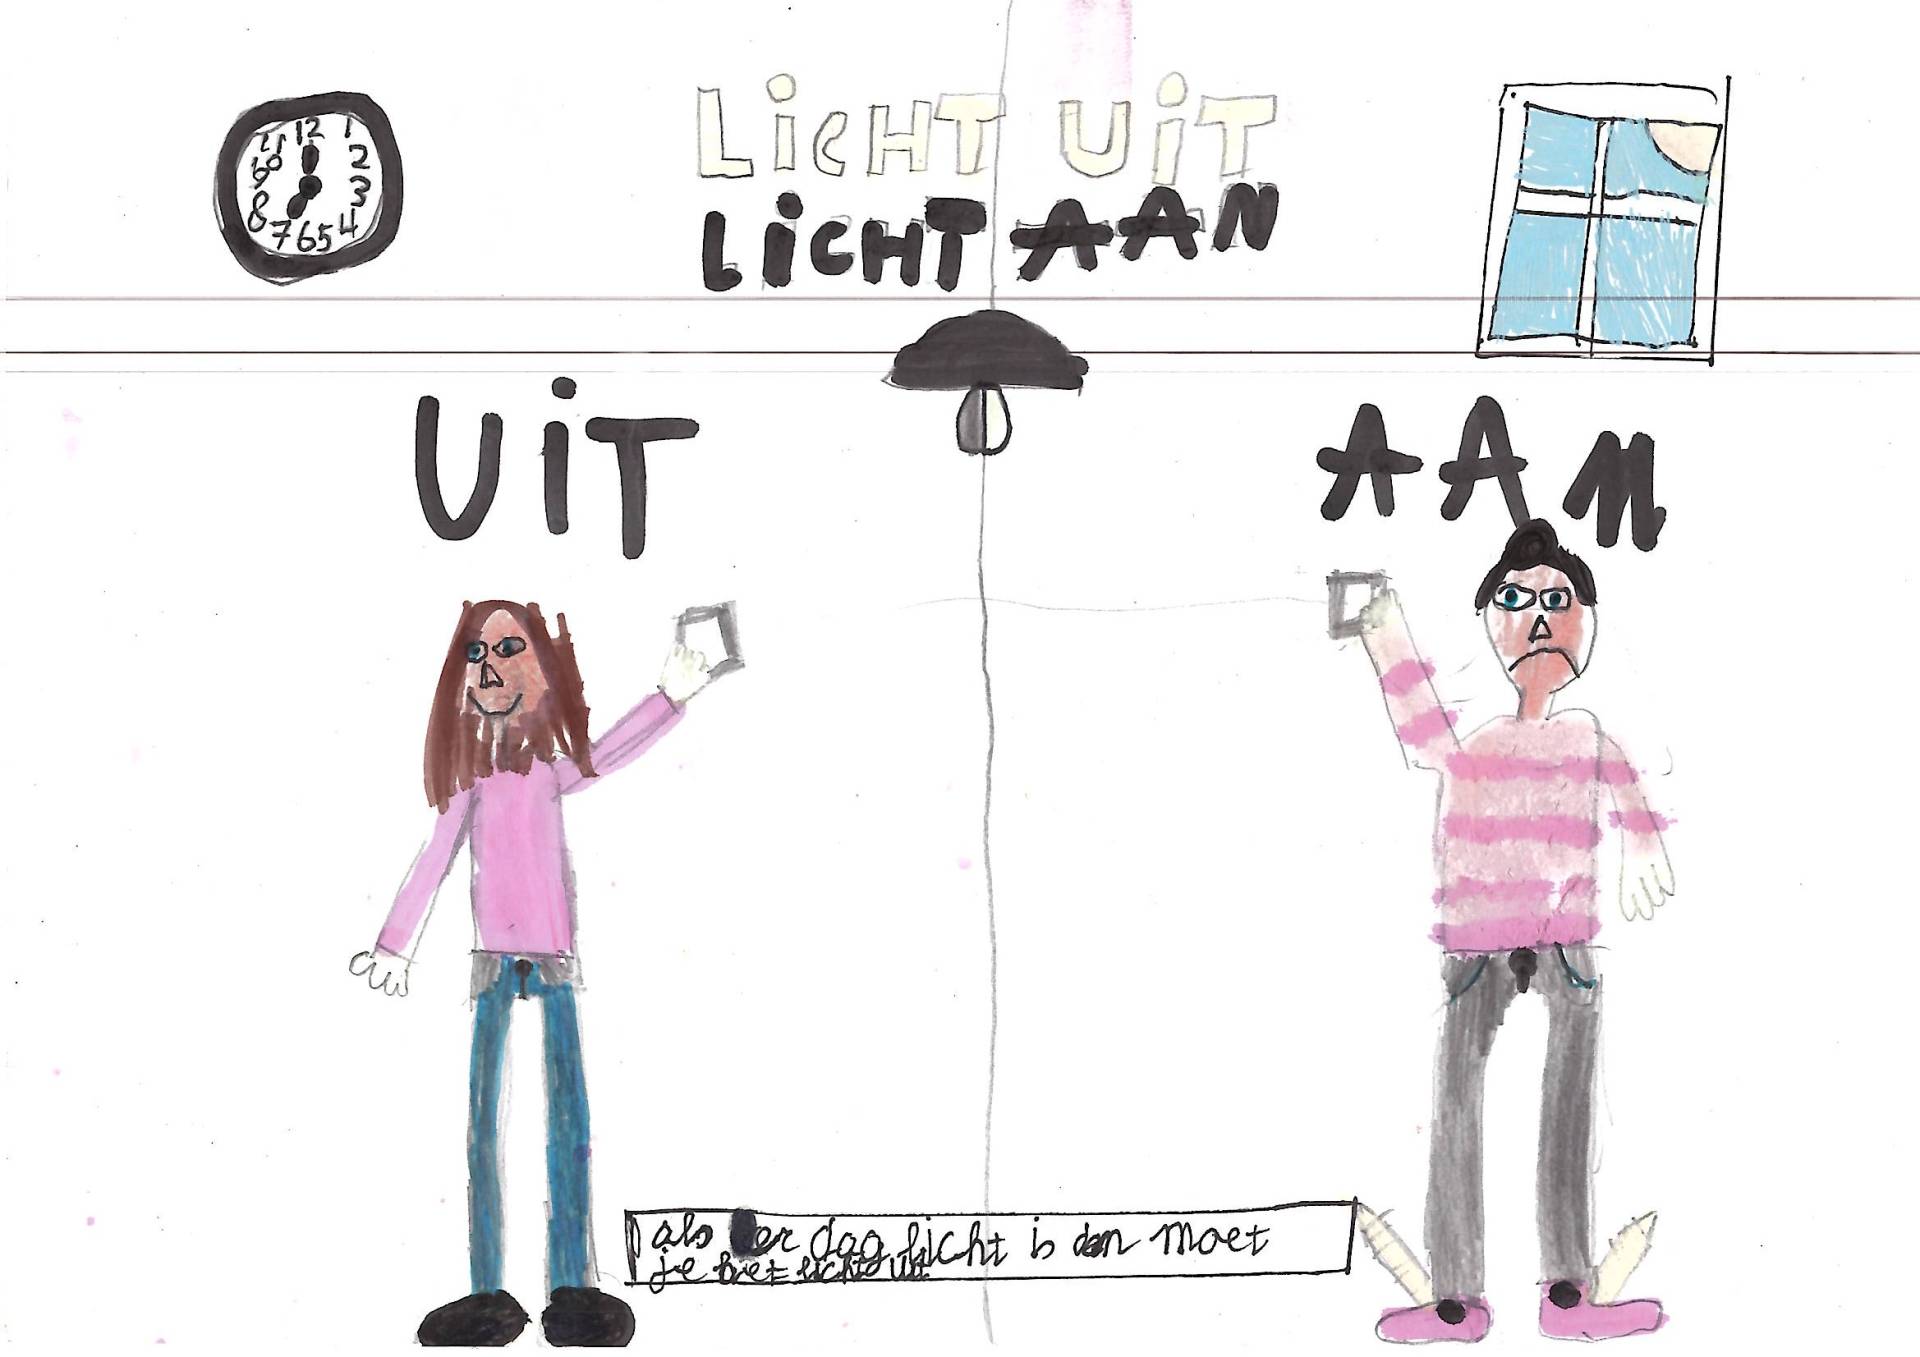 12
11 1
10 2
9 3
8 4
7 6 5
LiCHT UiT
LiCHT AAN
UiT
AAN
als er dag licht is dan moet
je het licht uit